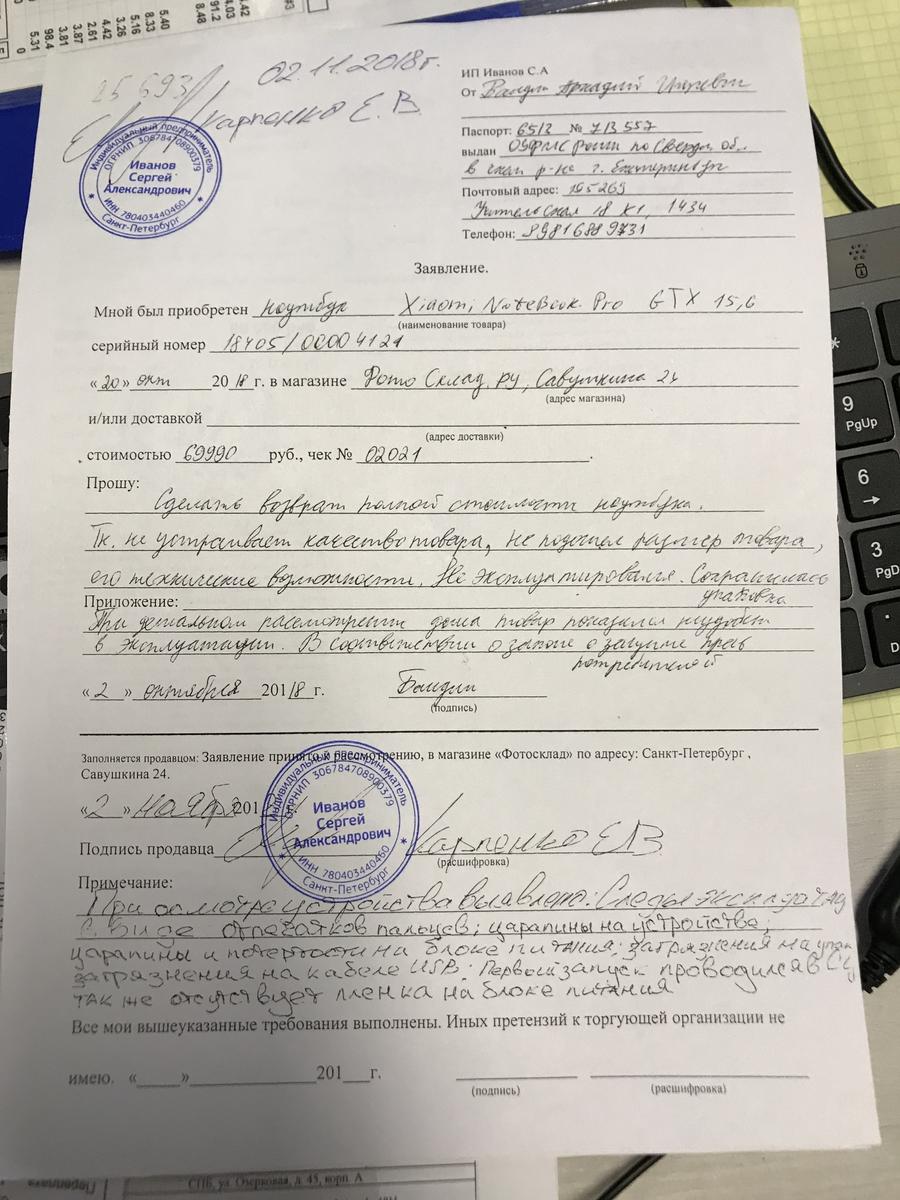 02.11.2018г.
Карпенко Е. В
Индивидуальный предприниматель
ОГРНИП 306784708900379
Иванов
Сергей
Александрович
ИНН 780403440460
Санкт-Петербург
ИП Иванов С.А
От
Паспорт: 6512 № 713557
выдан ОУФМС России по Свердл об..
в р-не г. Екатеринбург
Почтовый адрес: 195269
Учительская 18 к1, 1434
Телефон: 89816889731
Заявление.
Мной был приобретен ноутбук Xiaomi NoteBook Pro GTX 15,6
(наименование товара)
серийный номер 18405/00004121
«20» окт 2018 г. в магазине Фото Склад.ру, Савушкина 24
(адрес магазина)
и/или доставкой
(адрес доставки)
стоимостью 69990 руб., чек № 02021.
Прошу:
Сделать возврат полной стоимости ноутбука.
Тк. не устраивает качество товара, не подошел размер товара,
его технические возможности. Не эксплуатировался. Сохранилась
упаковка
Приложение:
При детальном рассмотрении дома товар показался неудобен
в эксплуатации. В соответствии о законе о защите прав
потребителей
«2» октября 2018 г.
(подпись)
Заполняется продавцом: Заявление принято к рассмотрению, в магазине «Фотосклад» по адресу: Санкт-Петербург ,
Савушкина 24.
«2» ноября 201 г.
Индивидуальный предприниматель
ОГРНИП 306784708900379
Иванов
Сергей
Александрович
ИНН 780403440460
Санкт-Петербург
Подпись продавца Карпенко ЕВ
(расшифровка)
Примечание:
При осмотре устройства выявлено: Следы эксплуатац
в виде отпечатков пальцев; царапины на устройстве;
царапины и потертости на блоке питания; загрязнения на упак
загрязнения на кабеле USB; Первый запуск проводился в СЦ
так же отсутствует пленка на блоке питания
Все мои вышеуказанные требования выполнены. Иных претензий к торгующей организации не
имею. «____»____________201__г.
(подпись) (расшифровка)
9
PgUp
6
→
3
PgD
СПБ, ул. Озерковая, д. 45, корп. А